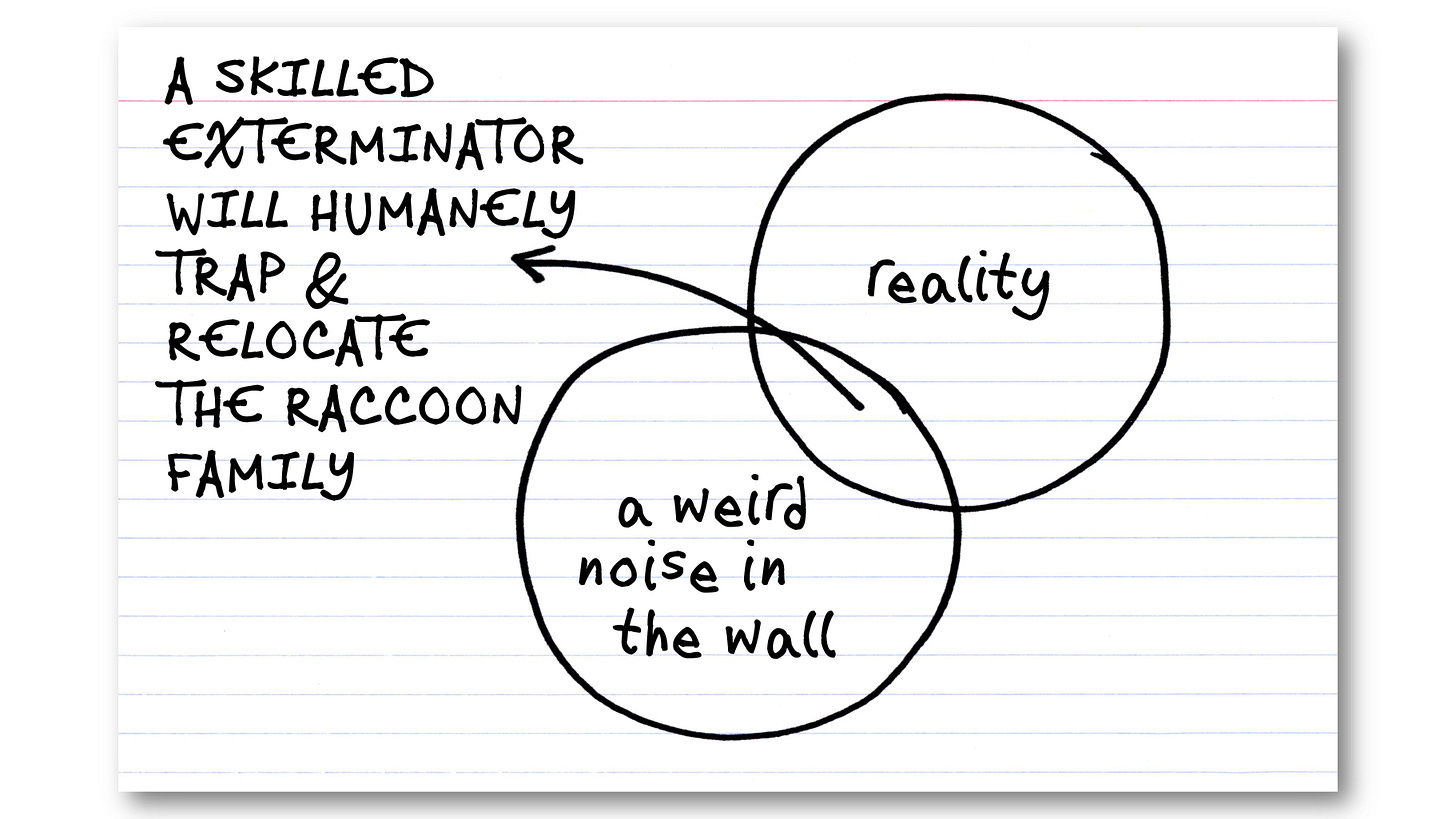 A SKILLED
EXTERMINATOR
WILL HUMANELY
TRAP &
RELOCATE
THE RACCOON
FAMILY
reality
a weird
noise in
the wall